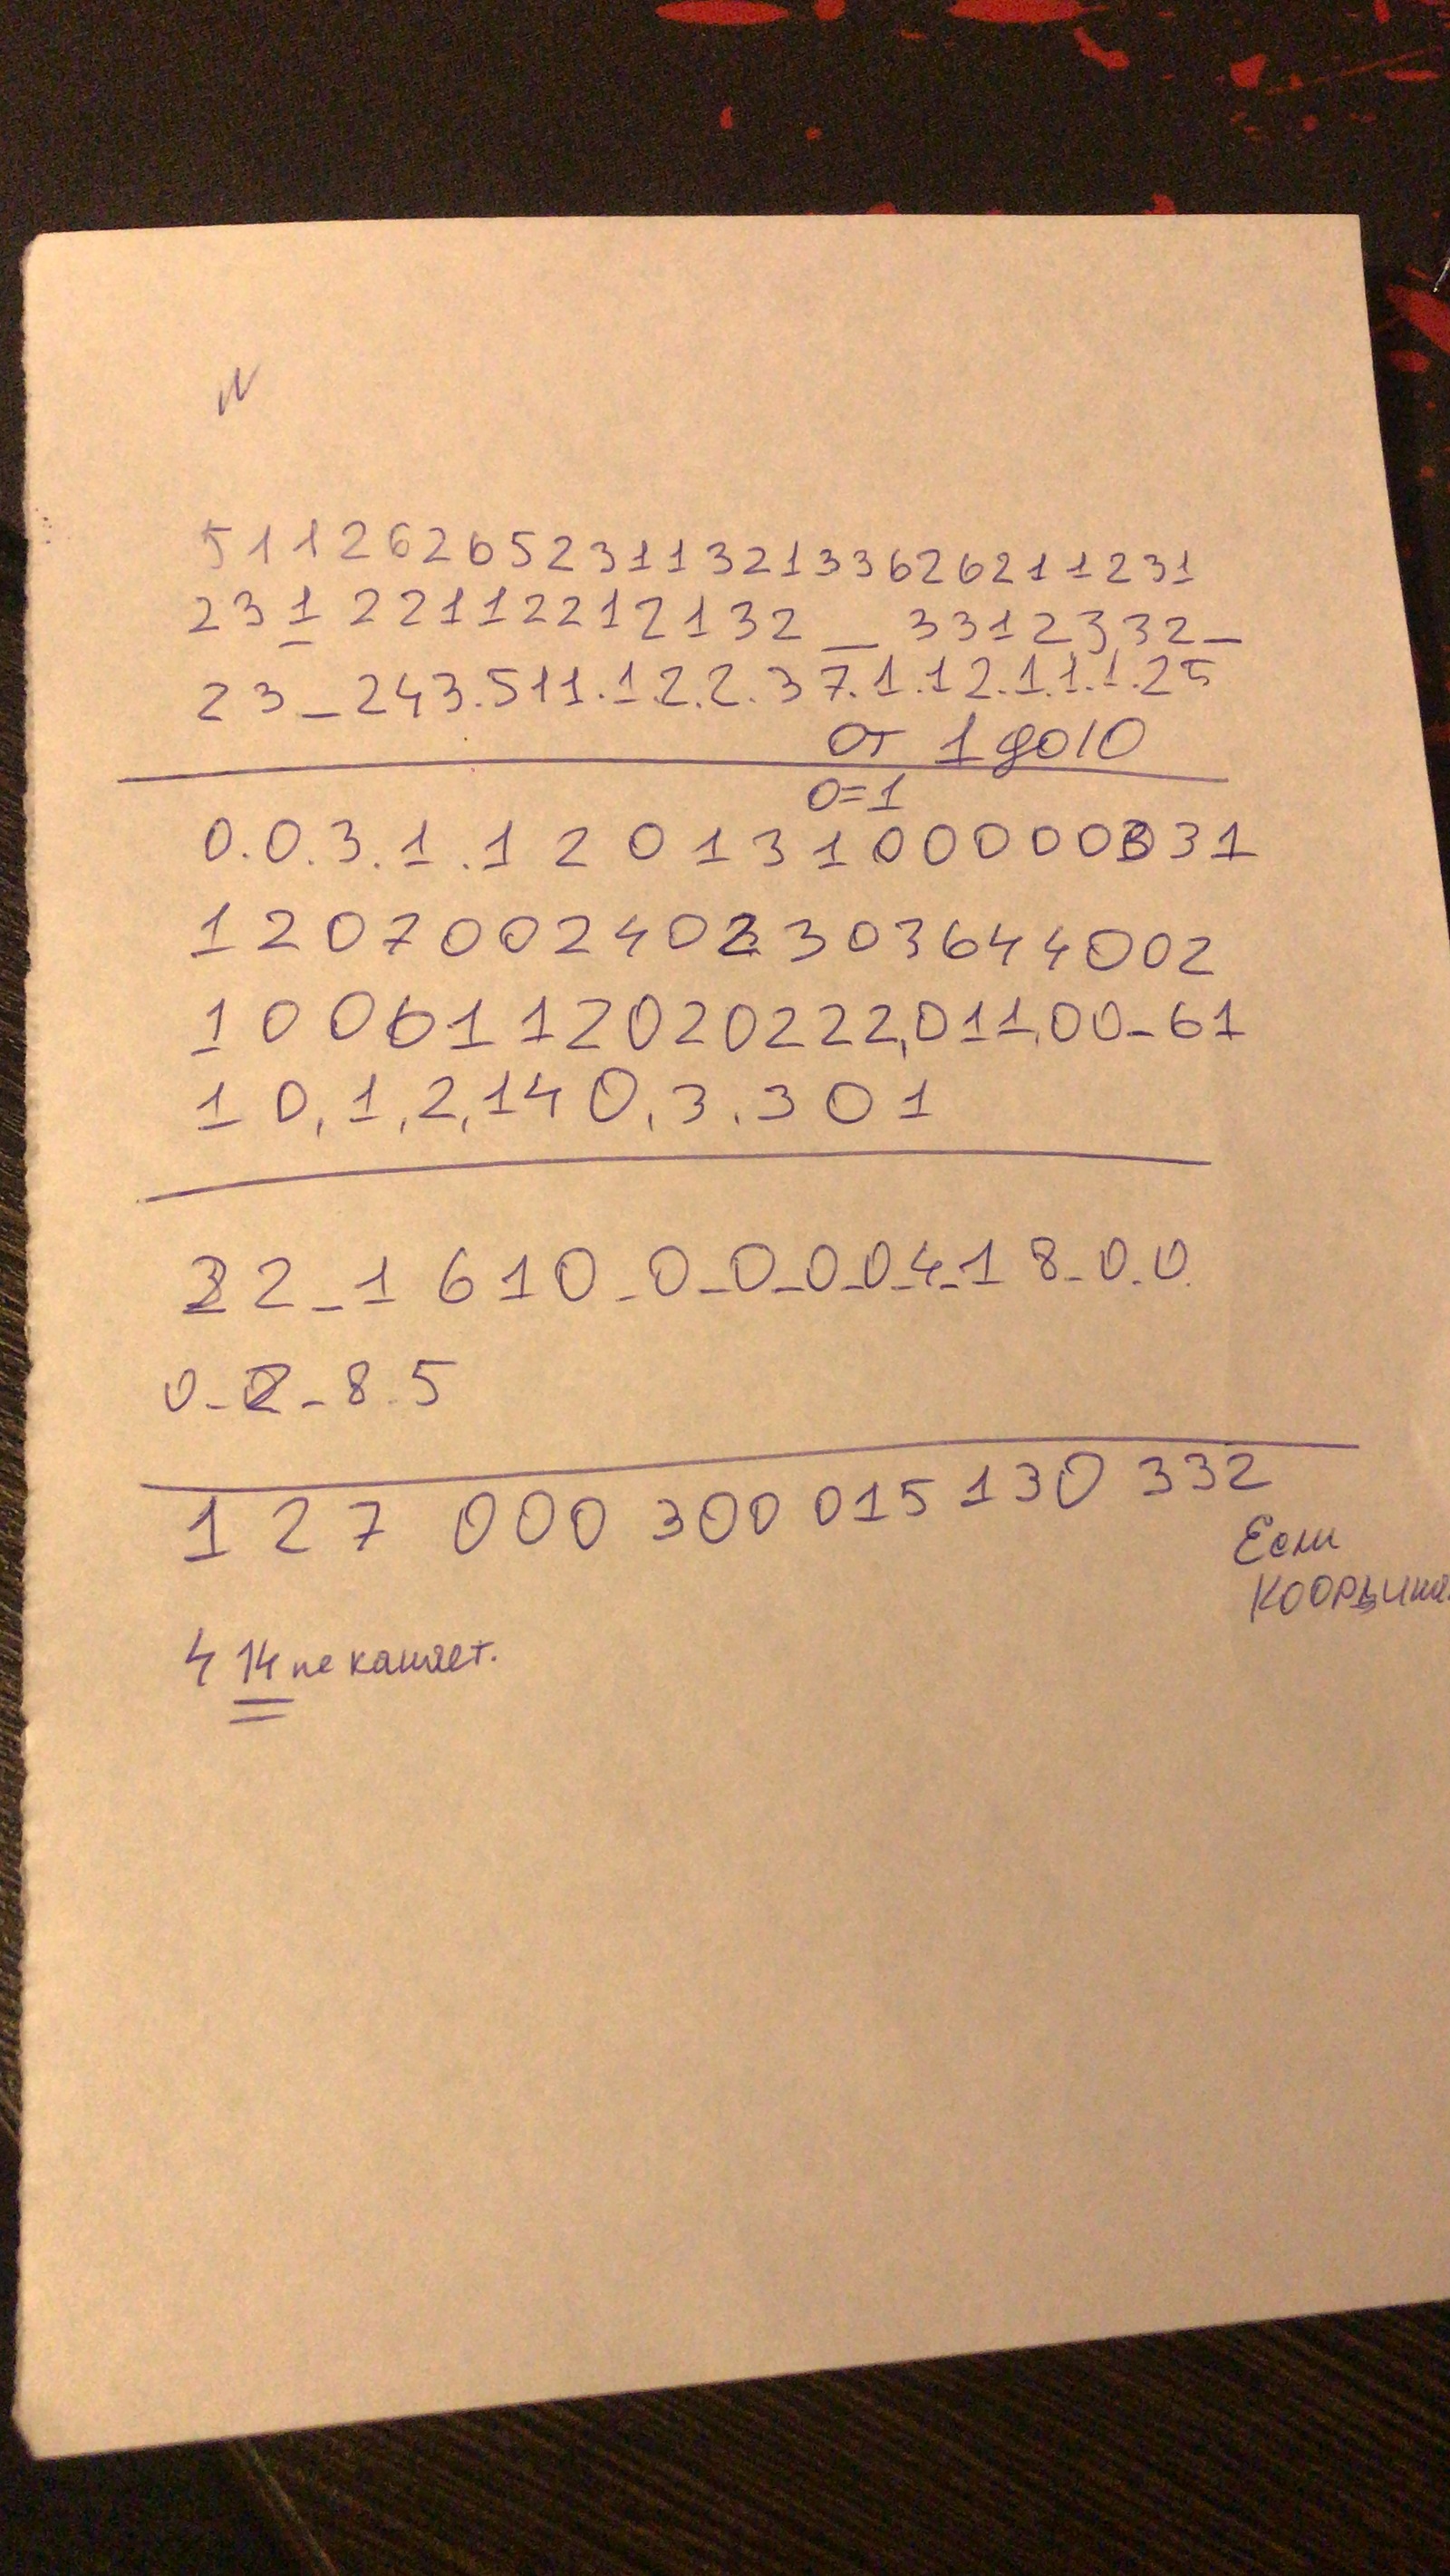 5112626523113213362621 1231
231 22112212132 _ 3312332_
23_243.511.1.2.2.37.1.12.1.1.1.25
от 1 до10
0=1
0.0.3.1.1 2 0 1 3 1 0 0 0 0 0 3 3 1
1 2 0 7 0 0 2 4 0 2 3 0 3 6 4 4 0 0 2
1 0 0 6 1 1 2 0 2 0 2 2 2,0 1 1,0 0_61
1 0,1,2,14 0,3.3 0 1
22_1 6 1 0_0_0_0_0_4_1 8_0_0.
0_2_8.5
1 2 7 000 300 015 130 332
Если
4 14 не каняет.